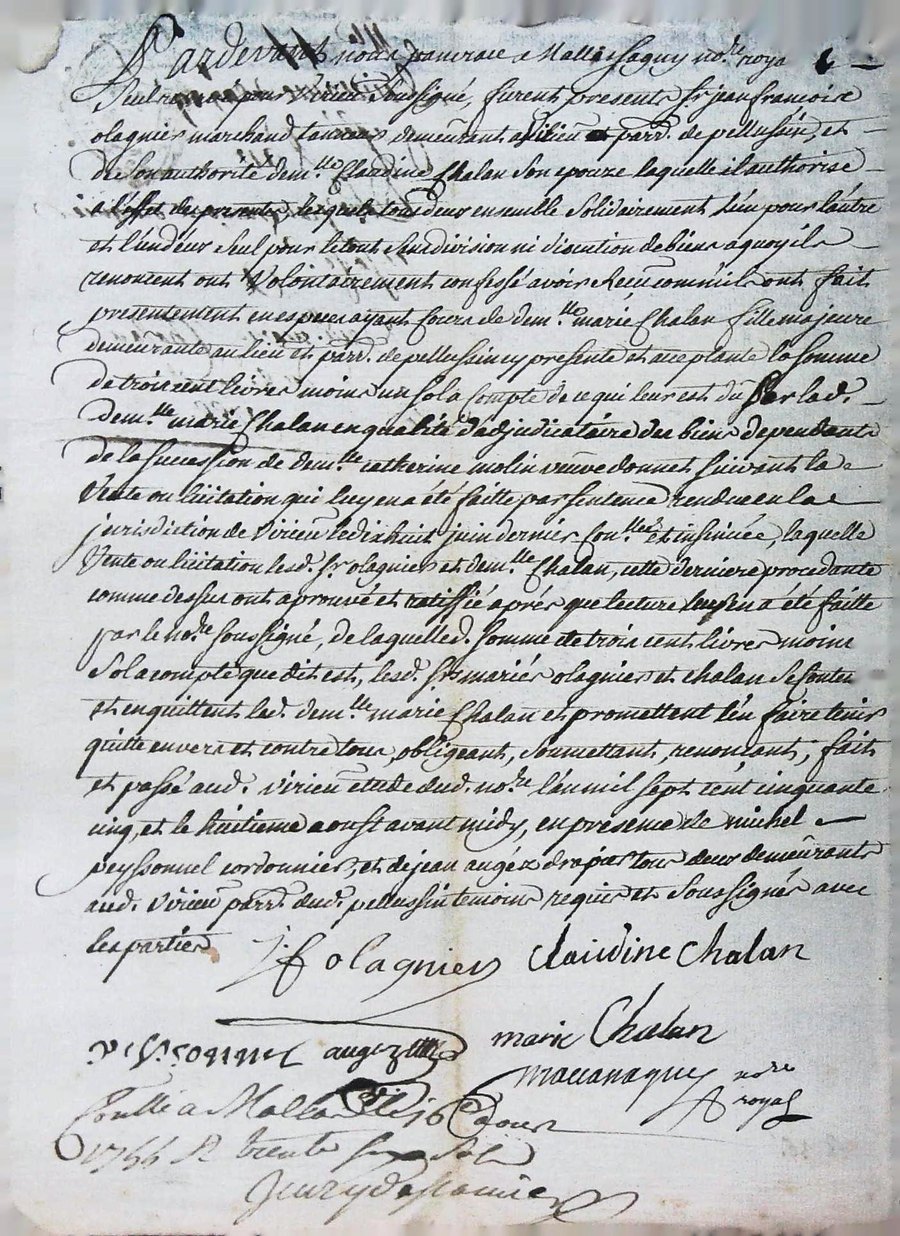 Pardevant nous not.re roya
Reservé pour Virieu soussigné, furent presents Sr. jean francois
olagnier marchand tanneur demeurant audit lieu parr. de pellussin, et
de son authorité dem.lle Claudine Chalan son epouze laquelle il authorise
a l'effet des presentes, lesquels tous deux ensemble solidairement l'un pour l'autre
et l'un d'eux seul pour le tout sans division ni discution de biens a quoy ils
renoncent ont volontairement confessé avoir Receu comm'ils ont fait
presentement en especes ayant cours de dem.lle marie Chalan fille majeure
demeurante au lieu et parr. de pellussin cy presente et acceptante la somme
de trois cent livres moins un sol a compte de ce qui leur est dû par lad.
dem.lle marie Chalan en qualité d'adjudicataire des biens dependants
de la succession de dem.lle catherine molin veuve donnet suivant la
vente ou licitation qui luy en a été faitte par sentence rendue en la
jurisdiction de virieu le dixhuit juin dernier con.llée et insinuée, laquelle
vente ou licitation lesd. Sr. olagnier et dem.lle Chalan, cette derniere procedante
comme dessus ont aprouvé et ratiffié aprés que lecture leur en a été faitte
par le no.re soussigné, de laquelle d. somme de trois cent livres moins
sol a compte que dit est, lesd. Srs mariés olagnier et chalan se contentent
et en quittent lad. dem.lle marie Chalan et promettent l'en faire tenir
quitte envers et contre tous, obligeant, soumettant, renoncant, fait
et passé aud. virieu etude dud. no.re l'an mil sept cent cinquante
cinq, et le huitieme aoust avant midy, en presence de michel
peyssonnel cordonnier, et de jean augez drapier tous deux demeurants
aud. virieu parr. dud. pellussin temoins requis et soussignés avec
les parties
J. f olagnier Claudine Chalan
marie Chalan
peyssonnel augez
not.re
royal
a 16
trente six sols